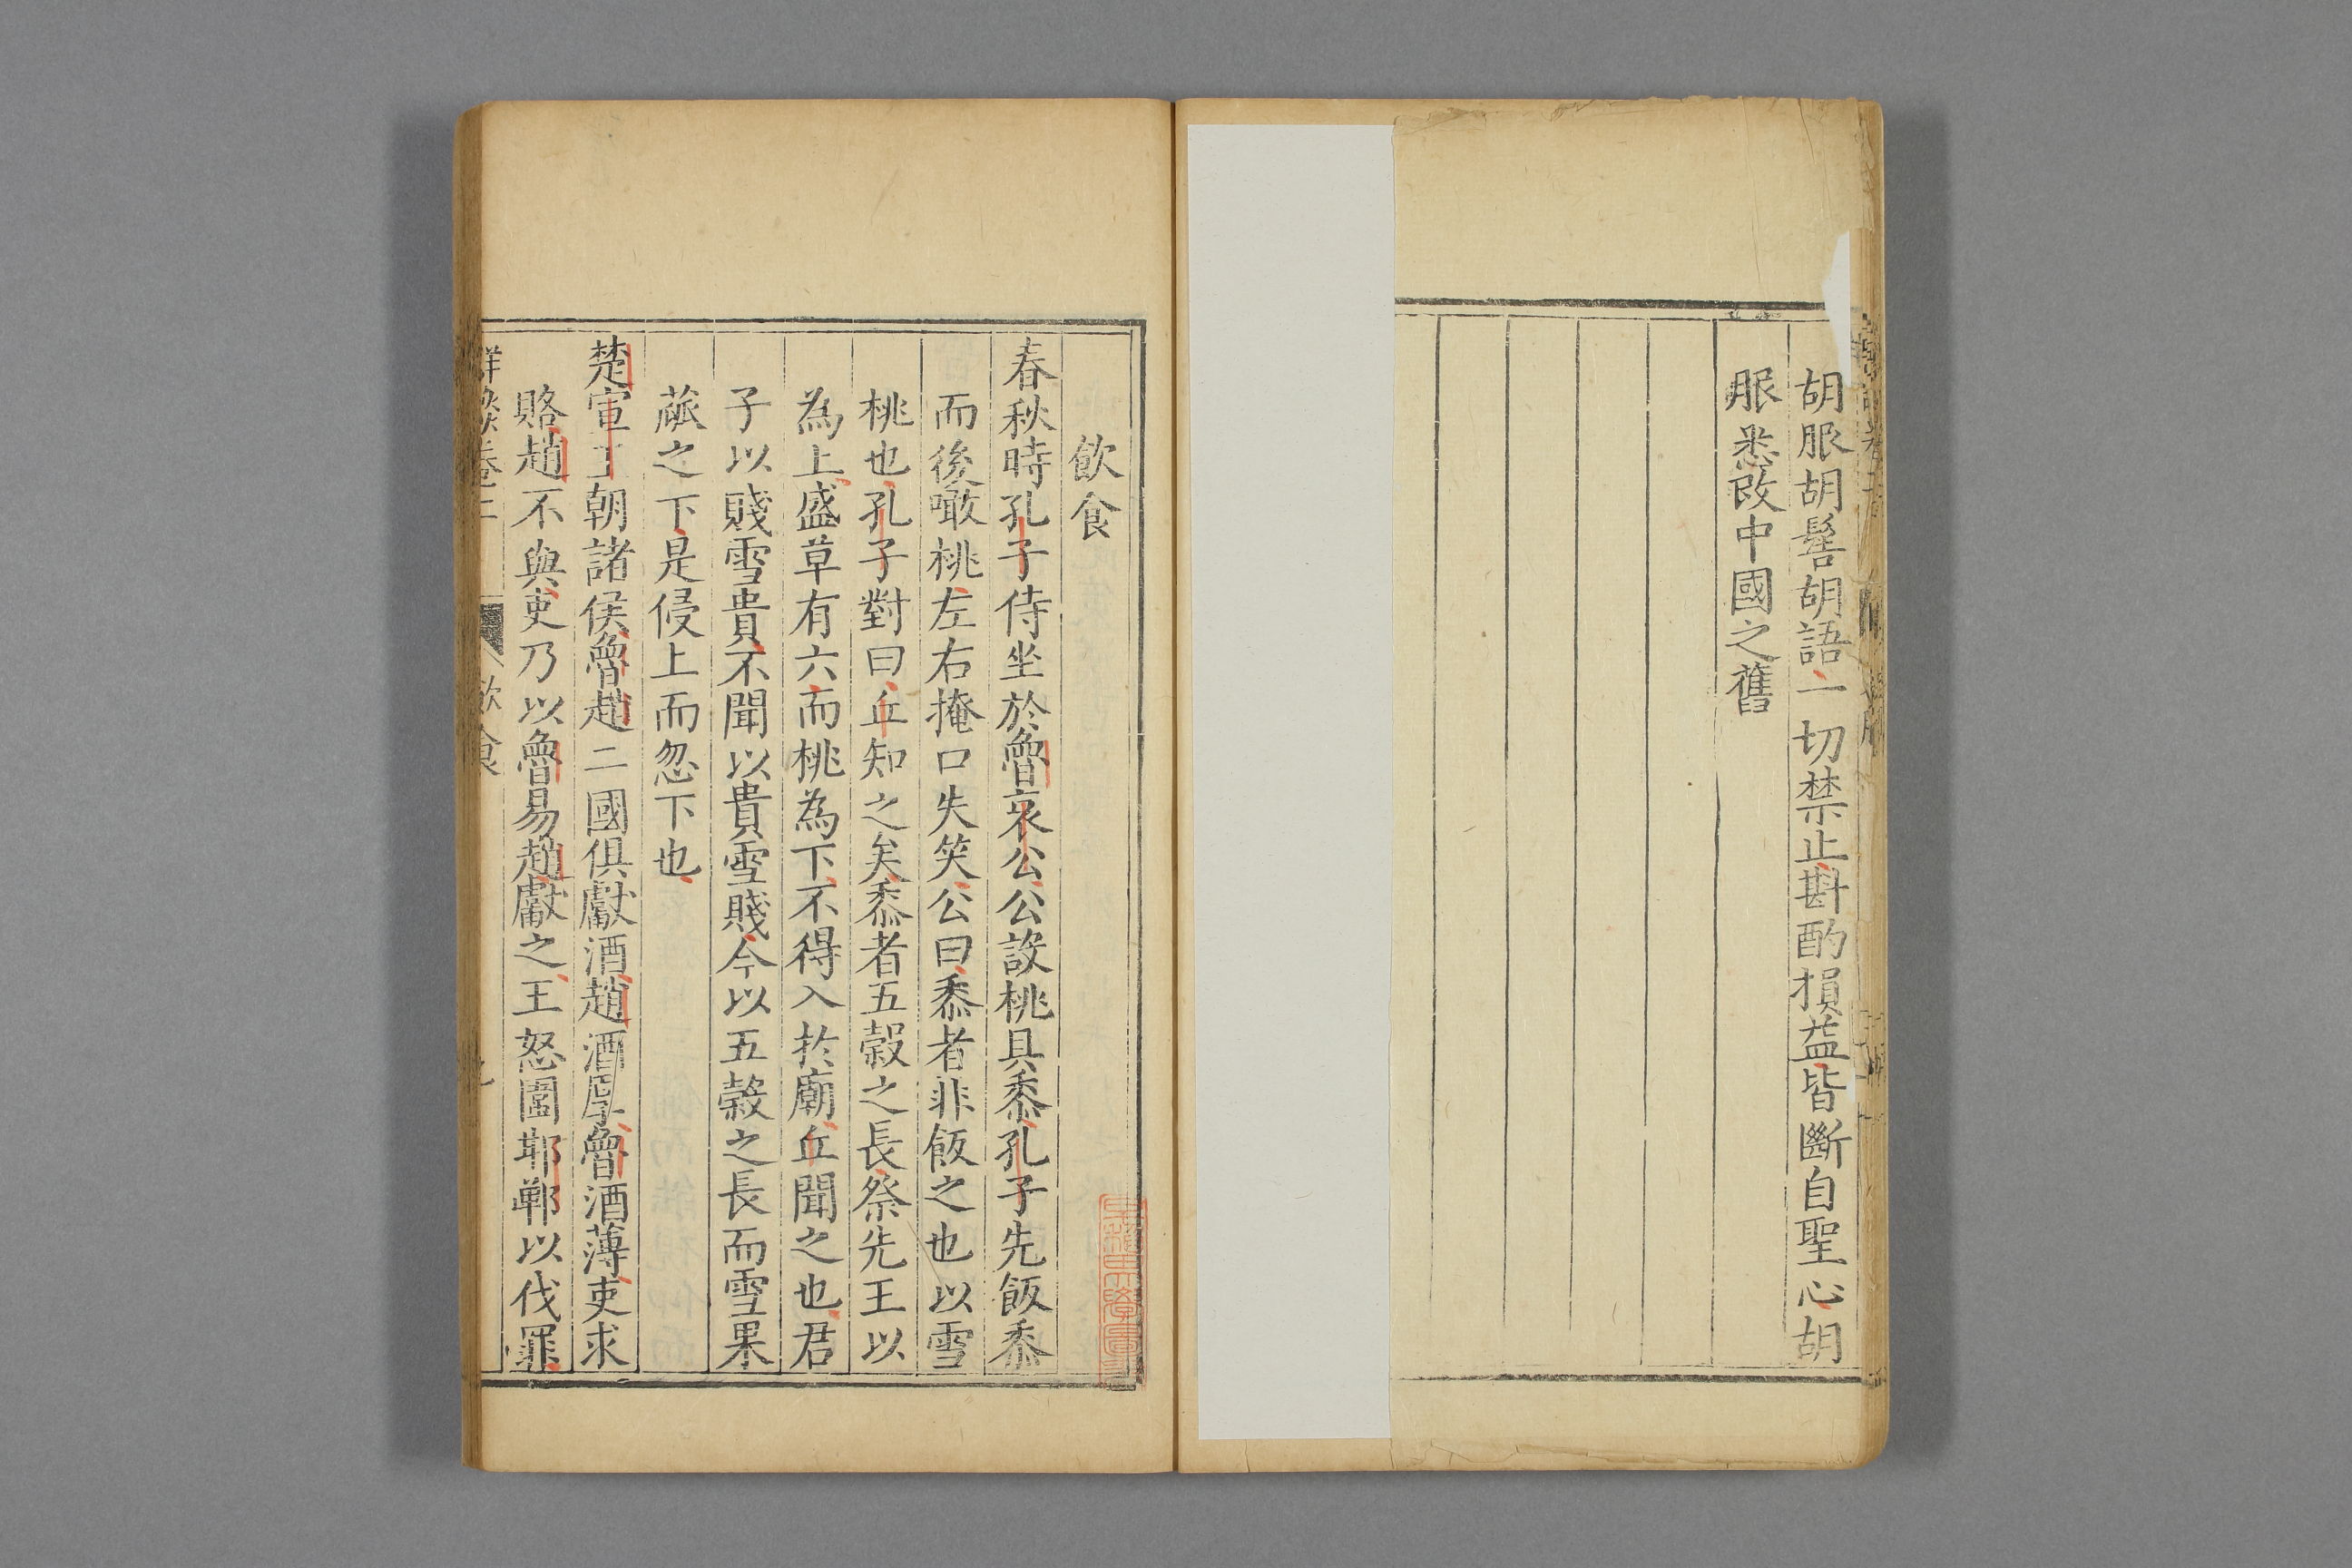 胡服胡髻胡語一切禁止斟酌損益皆斷自聖心胡
服悉改中國之舊
飲食
春秋時孔子侍坐於魯哀公公設桃具黍孔子先飯黍
而後噉桃左右掩口失笑公曰黍者非飯之也以雪
桃也孔子對曰丘知之矣黍者五穀之長祭先王以
為上盛草有六而桃為下不得入於廟丘聞之也君
子以賤雪貴不聞以貴雪賤今以五穀之長而雪果
蓏之下是侵上而忽下也
楚宣王朝諸侯魯趙二國俱獻酒趙酒厚魯酒薄吏求
賂趙不與吏乃以魯易趙獻之王怒圍邯鄲以伐罪
飲食